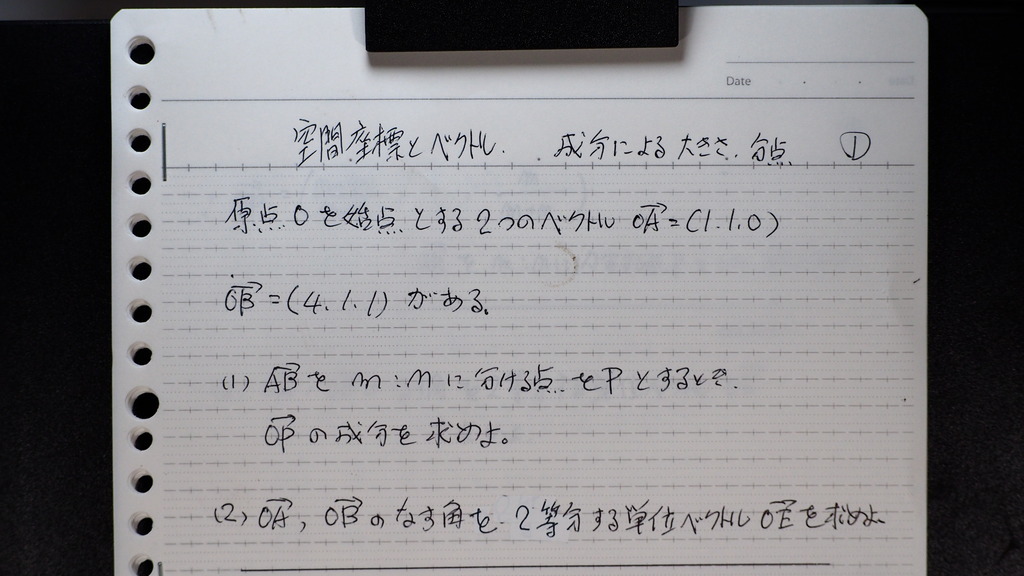 Date
空間座標とベクトル. 成分による大きさ、分点 ①
原点Oを始点とする2つのベクトル OA→=(1.1.0)
OB→=(4.1.1)がある。
(1) AB→を m:nに分ける点をPとするとき、
OP→の成分を求めよ。
(2) OA→, OB→のなす角を2等分する単位ベクトルOE→を求めよ。